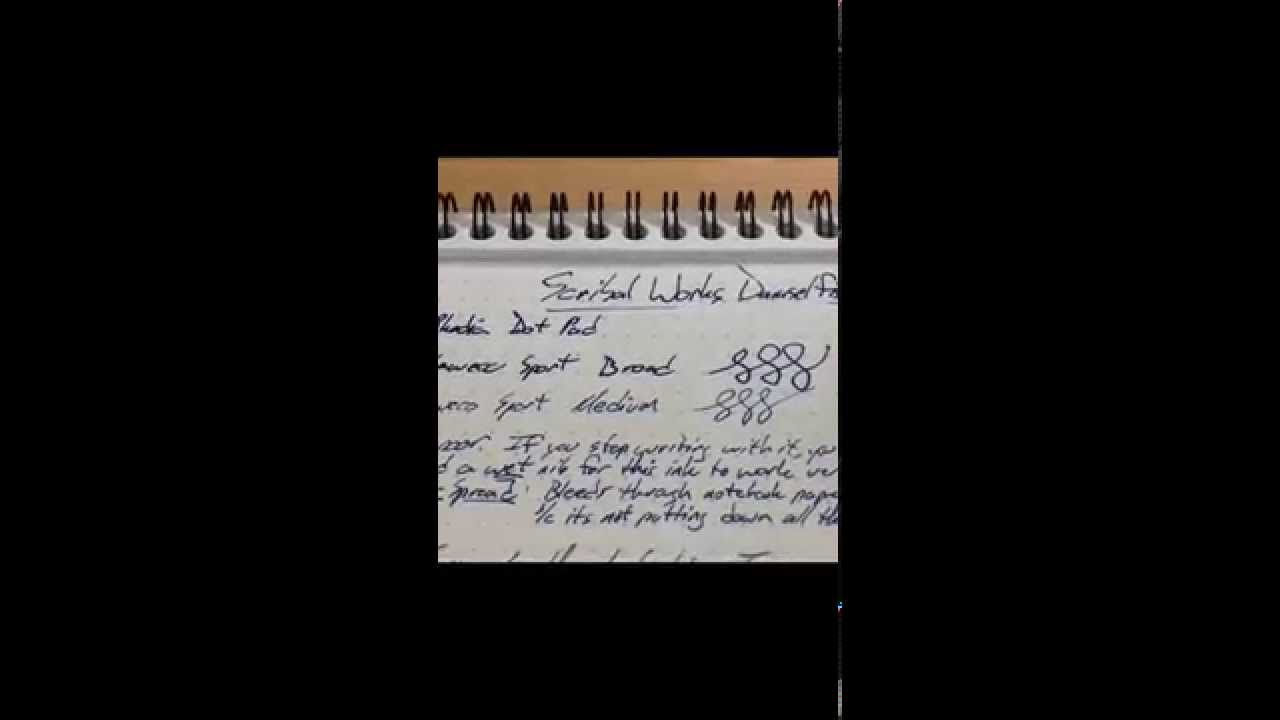 Scribal Works Damself
Dot Pad
Sport Broad
Sport Medium
If you stop writing with it, you
a wet nib for this ink to work
Spread: Bleeds through notebook
b/c its not putting down all